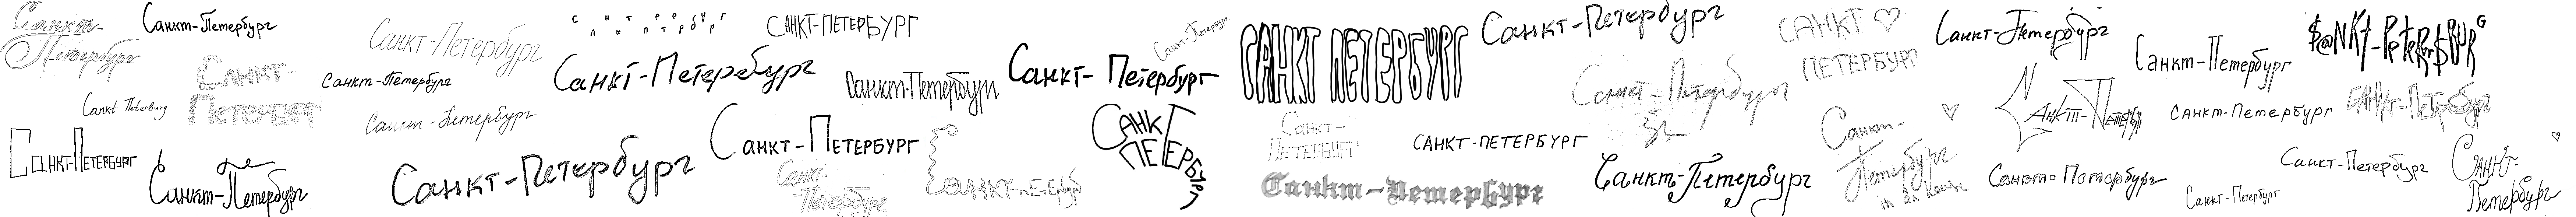 Санкт-
Петербург
Санкт-Петербург
Санкт-Петербург
САНКТ-ПЕТЕРБУРГ
Санкт-Петербург
Санкт-Петербург
САНКТ ♡
ПЕТЕРБУРГ
Санкт-Петербург
$@NKt-PeteR₽t$BURG
Санкт-
Петербург
Санкт-Петербург
Санкт-Петербург
Санкт-Петербург
Санкт-Петербург
САНКТ ПЕТЕРБУРГ
Санкт-Петербург
Санкт-Петербург
Sankt Peterburg
Санкт-Петербург
Санкт-Петербург
Санкт-Петербург
Санкт-Петербург
Санкт-Петербург
Санкт-Петербург
САНКТ-ПЕТЕРБУРГ
Санкт-Петербург
Санкт-
Петербург
САНКТ
ПЕТЕРБУРГ
Санкт-
Петербург
САНКТ-ПЕТЕРБУРГ
Санкт-
Петербург
in da house
Санкт-Петербург
Санкт-
Петербург
Санкт-Петербург
Санкт-Петербург
Санкт-
Петербург
Санкт-Петербург
Санкт-Петербург
Санкт-Петербург
Санкт-Петербург
Санкт-Петербург